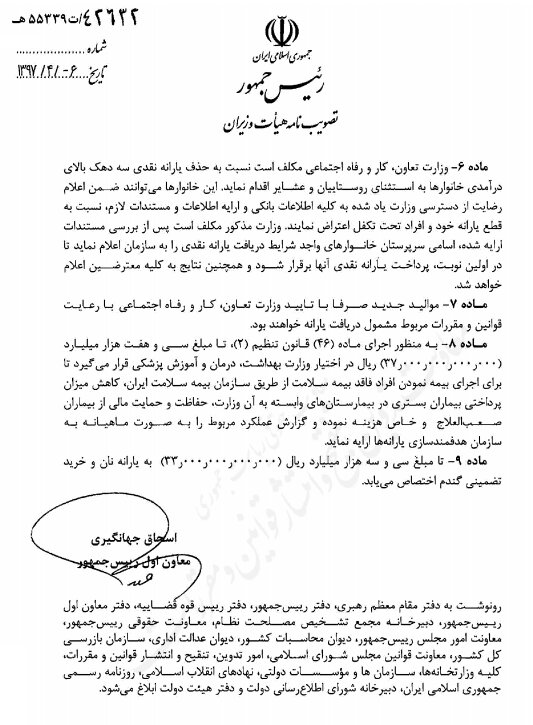 ۴۲۶۳۲/ت۵۵۳۳۹هـ
شماره
تاریخ ۱۳۹۷/۴/۰۶
جمهوری اسلامی ایران
رئیس جمهور
تصویب نامه هیأت وزیران
ماده ۶- وزارت تعاون، کار و رفاه اجتماعی مکلف است نسبت به حذف یارانه نقدی سه دهک بالای
درآمدی خانوارها به استثنای روستاییان و عشایر اقدام نماید. این خانوارها می‌توانند ضمن اعلام
رضایت از دسترسی وزارت یاد شده به کلیه اطلاعات بانکی و ارایه اطلاعات و مستندات لازم، نسبت به
قطع یارانه خود و افراد تحت تکفل اعتراض نمایند. وزارت مذکور مکلف است پس از بررسی مستندات
ارایه شده، اسامی سرپرستان خانوارهای واجد شرایط دریافت یارانه نقدی را به سازمان اعلام نماید تا
در اولین نوبت، پرداخت یارانه نقدی آنها برقرار شود و همچنین نتایج به کلیه معترضین اعلام
خواهد شد.
ماده ۷- موالید جدید صرفا با تایید وزارت تعاون، کار و رفاه اجتماعی با رعایت
قوانین و مقررات مربوط مشمول دریافت یارانه خواهند بود.
ماده ۸- به منظور اجرای ماده (۴۶) قانون تنظیم (۲)، تا مبلغ سی و هفت هزار میلیارد
(۳۷٫۰۰۰٫۰۰۰٫۰۰۰٫۰۰۰) ریال در اختیار وزارت بهداشت، درمان و آموزش پزشکی قرار می‌گیرد تا
برای اجرای بیمه نمودن افراد فاقد بیمه سلامت از طریق سازمان بیمه سلامت ایران، کاهش میزان
پرداختی بیماران بستری در بیمارستان‌های وابسته به آن وزارت، حفاظت و حمایت مالی از بیماران
صعب‌العلاج و خاص هزینه نموده و گزارش عملکرد مربوط را به صورت ماهیانه به
سازمان هدفمندسازی یارانه‌ها ارایه نماید.
ماده ۹- تا مبلغ سی و سه هزار میلیارد ریال (۳۳٫۰۰۰٫۰۰۰٫۰۰۰٫۰۰۰) به یارانه نان و خرید
تضمینی گندم اختصاص می‌یابد.
اسحاق جهانگیری
معاون اول رییس‌جمهور
رونوشت به دفتر مقام معظم رهبری، دفتر رییس‌جمهور، دفتر رییس قوه قضاییه، دفتر معاون اول
رییس‌جمهور، دبیرخانه مجمع تشخیص مصلحت نظام، معاونت حقوقی رییس‌جمهور،
معاونت امور مجلس رییس‌جمهور، دیوان محاسبات کشور، دیوان عدالت اداری، سازمان بازرسی
کل کشور، معاونت قوانین مجلس شورای اسلامی، امور تدوین، تنقیح و انتشار قوانین و مقررات،
کلیه وزارتخانه‌ها، سازمان ها و مؤسسات دولتی، نهادهای انقلاب اسلامی، روزنامه رسمی
جمهوری اسلامی ایران، دبیرخانه شورای اطلاع‌رسانی دولت و دفتر هیئت دولت ابلاغ می‌شود.